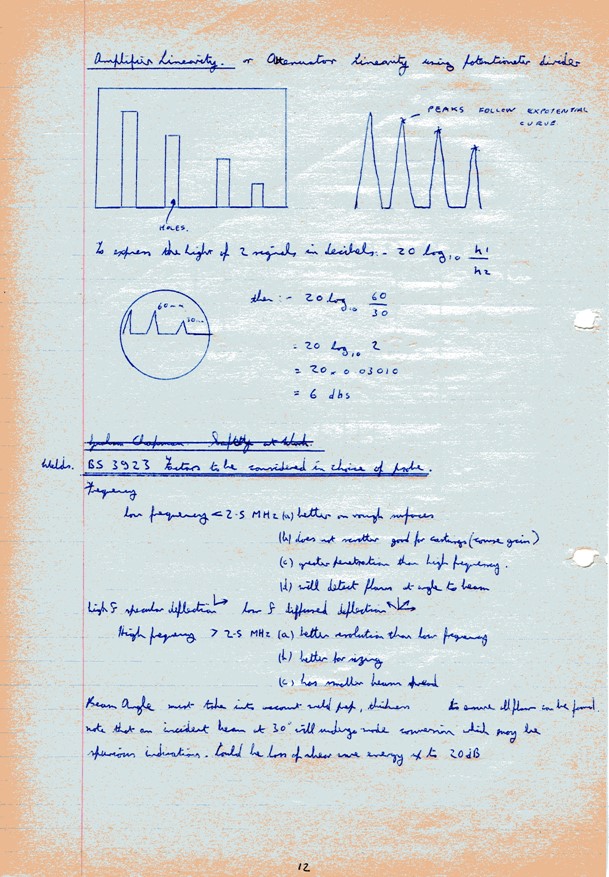 Amplifier Linearity. or Attenuator Linearity using potentiometer divider
PEAKS FOLLOW EXPOTENTIAL
CURVE
HOLES.
To express the hight of 2 signals in decibels:- 20 log10 h1/h2
60mm
30mm
then :- 20 log10 60/30
= 20 log10 2
= 20 × 0.03010
= 6 dbs
Graham Chapman Saftety at Work
Welds. BS 3923 Factors to be considered in choice of probe.
Frequency
Low frequency < 2.5 MHz (a) better on rough surfaces
(b) does not scatter good for castings (course grain)
(c) greater penetration than high frequency.
(d) will detect flaws at angle to beam
high f specular deflection low f diffused deflection
High frequency > 2.5 MHz (a) better resolution than low frequency
(b) better for sizing
(c) has smaller beam spread
Beam Angle must take into account weld prep, thickness to ensure all flaws can be found.
note that an incident beam at 30° will undergo mode conversion which may be
spurious indications. Could be loss of shear wave energy up to 20dB
12